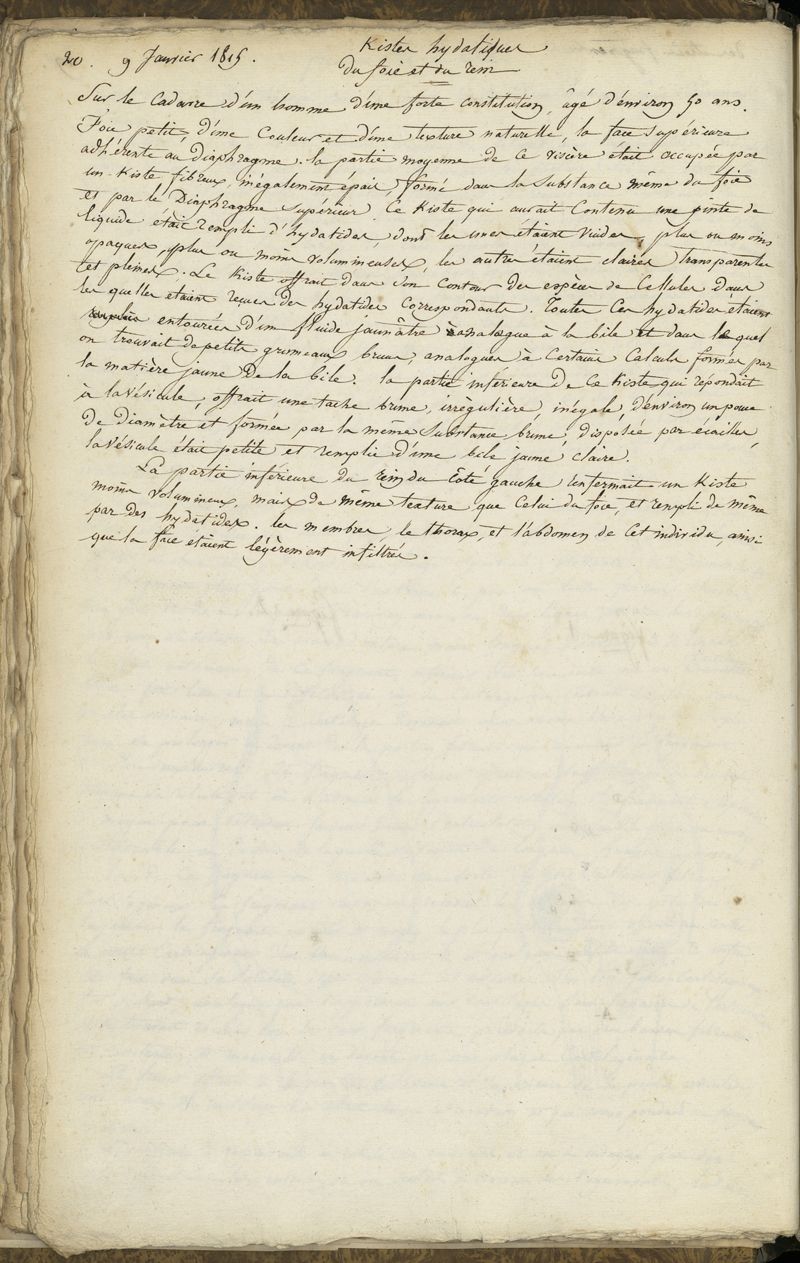 20. 9 Janvier 1815. Kistes hydatiques
du foie et du rein
Sur le Cadavre d'un homme d'une forte constitution, âgé d'environ 50 ans.
Foie petit, d'une Couleur et d'une texture naturelle, la face supérieure
adhérente au Diaphragme. la partie moyenne de ce viscère était occupée par
un Kiste fibreux, inégalement épais, formé dans la Substance même du foie
et par le Diaphragme supérieur. Ce Kiste qui aurait Contenu une pinte de
liquide etait rempli d'hydatides, dont les unes etaient vuides, plus ou moins
opaques, plus ou moins volumineuses, les autres étaient claires, transparentes
et pleines. Le Kiste offrait dans son Contour des espèces de Cellules dans
les quelles etaient recues des hydatides Correspondantes. Toutes Ces hydatides étaient
entourées d'un fluide jaunâtre analogue à la bile et dans lequel
on trouvait de petits grumeaux bruns, analogues à Certains Calculs formés par
la matière jaune De la bile. la partie inférieure De Ce Kiste qui répondait
à la vésicule, offrait une tache brune, irrègulière, inégale, d'environ un pouce
De Diamètre et formée par la même Substance brune, disposée par écailles,
la vésicule était petite et remplie d'une bile jaune claire.
La partie inférieure du rein du Côté gauche renfermait un Kiste
moins volumineux, mais de même texture que Celui du foie, et rempli de même
par des hydatides. les membres, le thorax, et l'abdomen de Cet individu, ainsi
que la face etaient légèrement infiltrés.